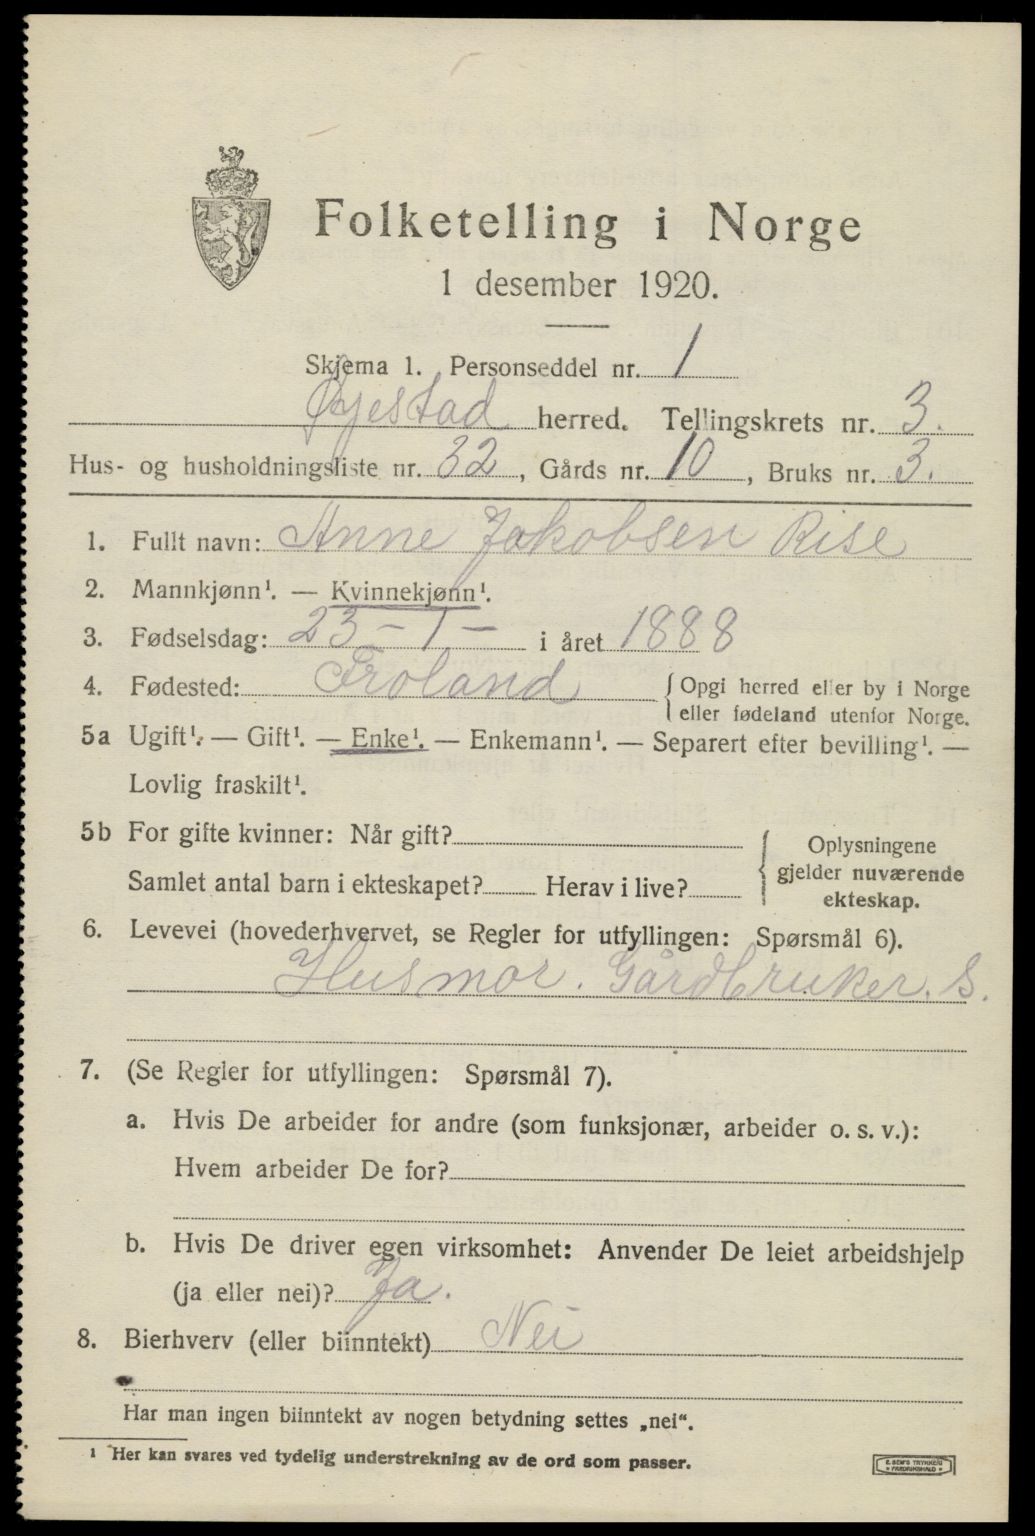 Folketelling i Norge
1 desember 1920.
Skjema 1. Personseddel nr. 1
Øyestad herred. Tellingskrets nr. 3.
Hus- og husholdningsliste nr. 32, Gårds nr. 10, Bruks nr. 3.
1. Fullt navn: Anne Jakobsen Rise
2. Mannkjønn¹. — Kvinnekjønn¹.
3. Fødselsdag: 23 – 1 – i året 1888
4. Fødested: Froland { Opgi herred eller by i Norge
eller fødeland utenfor Norge.
5a Ugift¹. — Gift¹. — Enke¹. — Enkemann¹. — Separert efter bevilling¹. —
Lovlig fraskilt¹.
5b For gifte kvinner: Når gift?
Samlet antal barn i ekteskapet? Herav i live?
{ Oplysningene
gjelder nuværende
ekteskap.
6. Levevei (hovederhvervet, se Regler for utfyllingen: Spørsmål 6).
Husmor. Gårdbruker. S.
7. (Se Regler for utfyllingen: Spørsmål 7).
a. Hvis De arbeider for andre (som funksjonær, arbeider o. s. v.):
Hvem arbeider De for?
b. Hvis De driver egen virksomhet: Anvender De leiet arbeidshjelp
(ja eller nei)? Ja.
8. Bierhverv (eller biinntekt) Nei
Har man ingen biinntekt av nogen betydning settes „nei“.
¹ Her kan svares ved tydelig understrekning av de ord som passer.
E. SEM'S TRYKKERI
FREDRIKSHALD